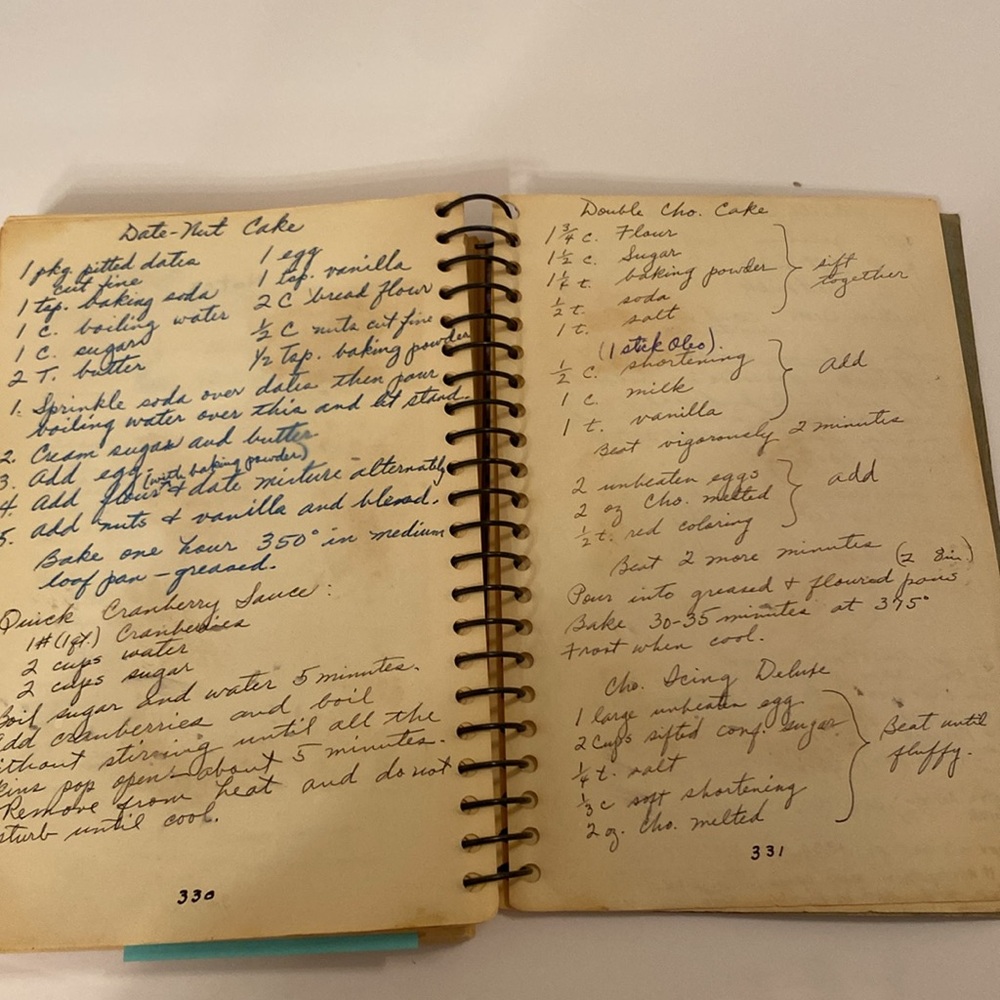 Date-Nut Cake
1 pkg pitted dates
cut fine
1 tsp. baking soda
1 c. boiling water
1 c. sugar
2 T. butter
1 egg
1 tsp. vanilla
2 C bread flour
½ C nuts cut fine
½ Tsp. baking powder
1. Sprinkle soda over dates then pour
boiling water over this and let stand.
2. Cream sugar and butter
3. Add egg
(with baking powder)
4. Add flour & date mixture alternately
5. Add nuts & vanilla and blend.
Bake one hour 350° in medium
loaf pan - greased.
Quick Cranberry Sauce:
1# (1 qt.) Cranberries
2 cups water
2 cups sugar
Boil sugar and water 5 minutes.
Add cranberries and boil
without stirring until all the
skins pop open - about 5 minutes.
Remove from heat and do not
disturb until cool.
330
Double Cho. Cake
1 ¾ c. Flour
1 ½ c. Sugar
1 ½ t. baking powder
½ t. soda
1 t. salt
sift
together
(1 stick Oleo).
½ c. shortening
1 c. milk
1 t. vanilla
add
Beat vigorously 2 minutes
2 unbeaten eggs
2 oz Cho. melted
½ t. red coloring
add
Beat 2 more minutes
(2 8in.)
Pour into greased & floured pans
Bake 30-35 minutes at 375°
Frost when cool.
Cho. Icing Deluxe
1 large unbeaten egg
2 Cups sifted conf. sugar
¼ t. salt
⅓ c soft shortening
2 oz. Cho. melted
Beat until
fluffy.
331